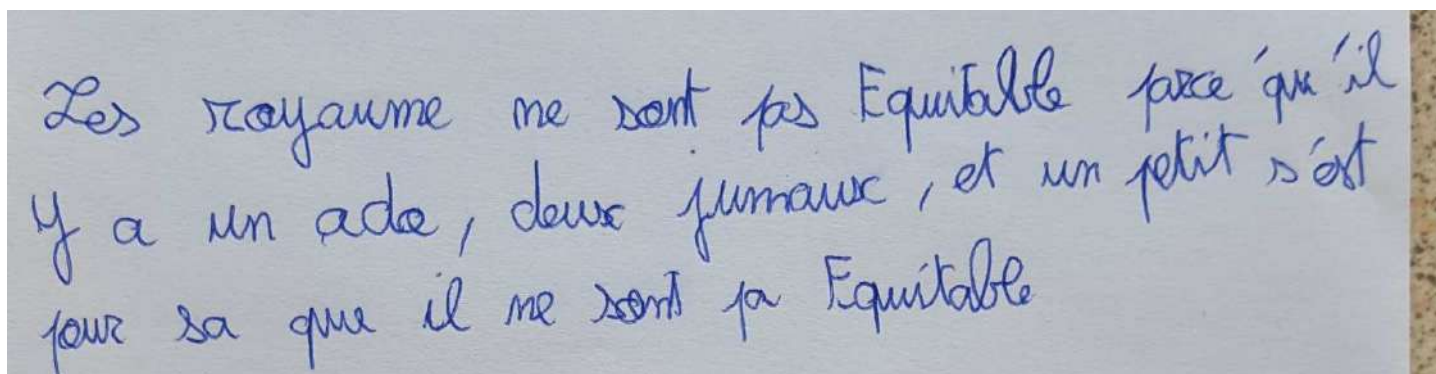 Les royaume ne sont pas Equitable parce 'qu'il
Y a un ado, deux jumaux, et un petit s'est
pour sa que il ne sont pa Equitable